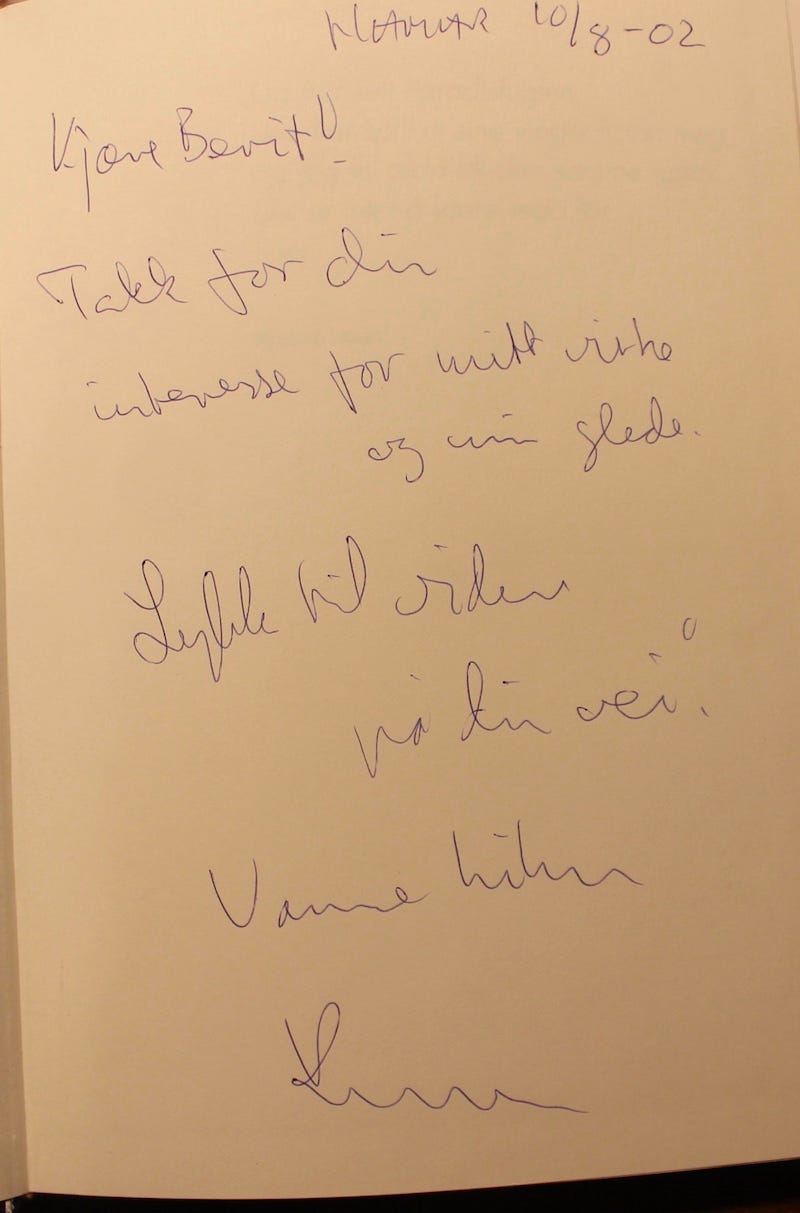 HAMAR 10/8-02
Kjære Berit!
Takk for din
interesse for mitt virke
og min glede.
Lykke til videre
på din vei!
Varme hilsn